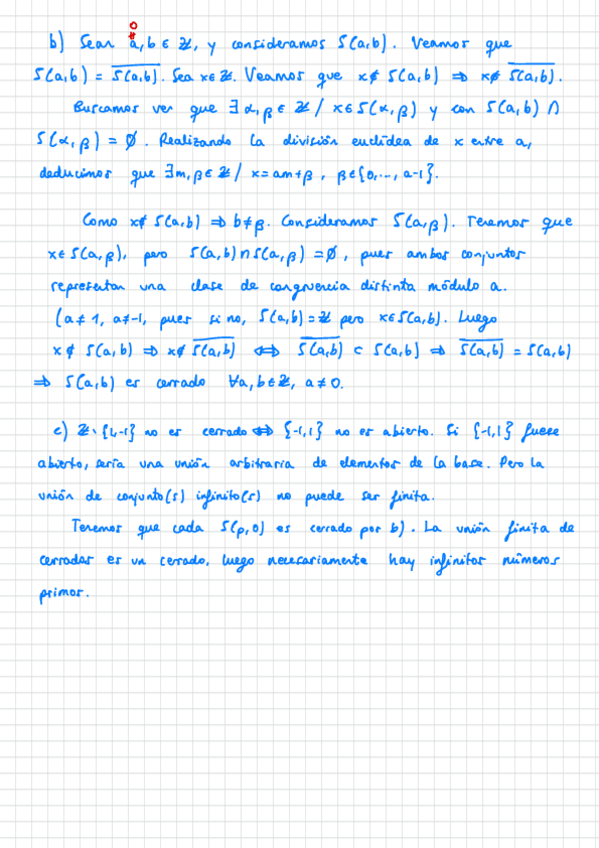 0
≠
b) Sean a, b ∈ ℤ, y consideramos S(a,b). Veamos que
S(a,b) = \overline{S(a,b)}. Sea x ∈ ℤ. Veamos que x ∉ S(a,b) ⇒ x ∉ \overline{S(a,b)}.
Buscamos ver que ∃ α, β ∈ ℤ / x ∈ S(α, β) y con S(a,b) ∩
S(α, β) = ∅. Realizando la división euclídea de x entre a,
deducimos que ∃ m, β ∈ ℤ / x = am + β, β ∈ {0,..., a-1}.
Como x ∉ S(a,b) ⇒ b ≠ β. Consideramos S(a, β). Tenemos que
x ∈ S(a, β), pero S(a,b) ∩ S(a, β) = ∅, pues ambos conjuntos
representan una clase de congruencia distinta módulo a.
(a ≠ 1, a ≠ -1, pues si no, S(a,b) = ℤ pero x ∈ S(a,b). Luego
x ∉ S(a,b) ⇒ x ∉ \overline{S(a,b)} ⇔ \overline{S(a,b)} ⊂ S(a,b) ⇒ \overline{S(a,b)} = S(a,b)
⇒ S(a,b) es cerrado ∀a, b ∈ ℤ, a ≠ 0.
c) ℤ \ {1,-1} no es cerrado ⇔ {-1,1} no es abierto. Si {-1,1} fuese
abierto, sería una unión arbitraria de elementos de la base. Pero la
unión de conjunto(s) infinito(s) no puede ser finita.
Tenemos que cada S(p,0) es cerrado por b). La unión finita de
cerrados es un cerrado, luego necesariamente hay infinitos números
primos.